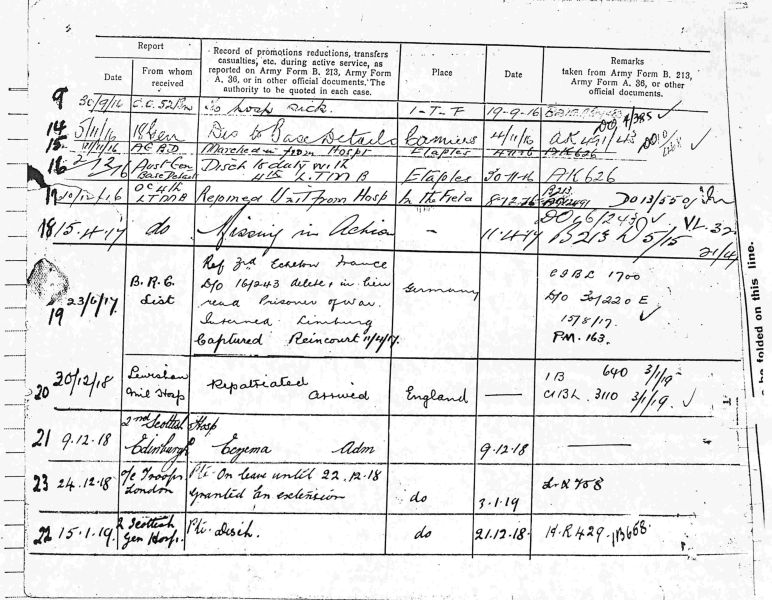 Report
Record of promotions reductions, transfers
casualties, etc. during active service, as
reported on Army Form B. 213, Army Form
A. 36, or in other official documents. The
authority to be quoted in each case.
Place
Date
Remarks
taken from Army Form B. 213,
Army Form A. 36, or other
official documents.
Date
From whom
received
9 30/9/16 To hosp sick. I-T-F 19-9-16
DO 1/385
14 5/11/16 Dis to Base Details Camiers 4/11/16 AK 491/43
15. 11/11/16 Marched in from Hospt Etaples AK 626
16 2/12/16 Aust Gen
Base Details
Disch to duty with
4th L.T.M.B
Etaples 30-11-16 AK 626
17 20/12/16 OC 4th
LTMB
Rejoined Unit from Hosp In the Field 8-12-16 B213
DO 13/550
DO 16/243
18 15.4.17 do Missing in Action - 11.4.17 B213 D 5/15
VL.32
21/4
19 23/6/17. B.R.C.
List
Ref 3rd Echelon France
D/O 16/243 delete & in lieu
read Prisoner of War.
Interned Limburg
Captured Reincourt 11/4/17.
Germany
CIBL 1700
D/O 30/220 E
15/8/17.
P.M. 163.
20 30/12/18 Lewisham
Mil Hosp
Repatriated
arrived
England — 1B 640 3/1/19
CIBL. 3110 3/1/19.
21 9.12.18 2nd Scottish Hosp
Edinburgh
Eczema Adm 9.12.18
23 24.12.18 o/c Troops
London
Pte. On leave until 22.12.18
granted an extension
do 3.1.19 L.R 758
22 15.1.19. 2 Scottish
Gen Hosp.
Pte. Disch. do 21.12.18. H.R 429. 1B668.
be folded on this line.